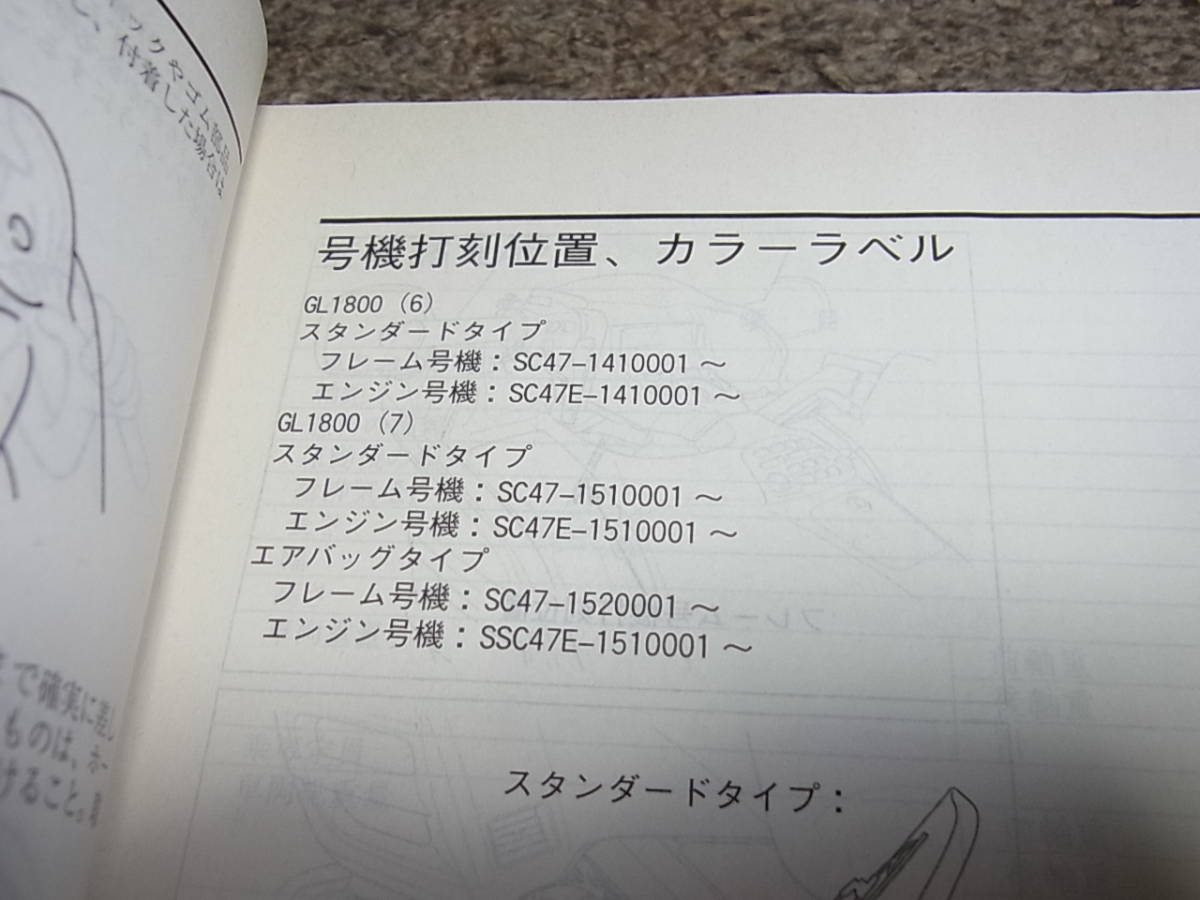 ックやゴム部品
し、付着した場合は
号機打刻位置、カラーラベル
GL1800 (6)
スタンダードタイプ
フレーム号機：SC47-1410001 〜
エンジン号機：SC47E-1410001 〜
GL1800 (7)
スタンダードタイプ
フレーム号機：SC47-1510001 〜
エンジン号機：SC47E-1510001 〜
エアバッグタイプ
フレーム号機：SC47-1520001 〜
エンジン号機：SSC47E-1510001 〜
で確実に差し
ものは、ホー
けること。
スタンダードタイプ：